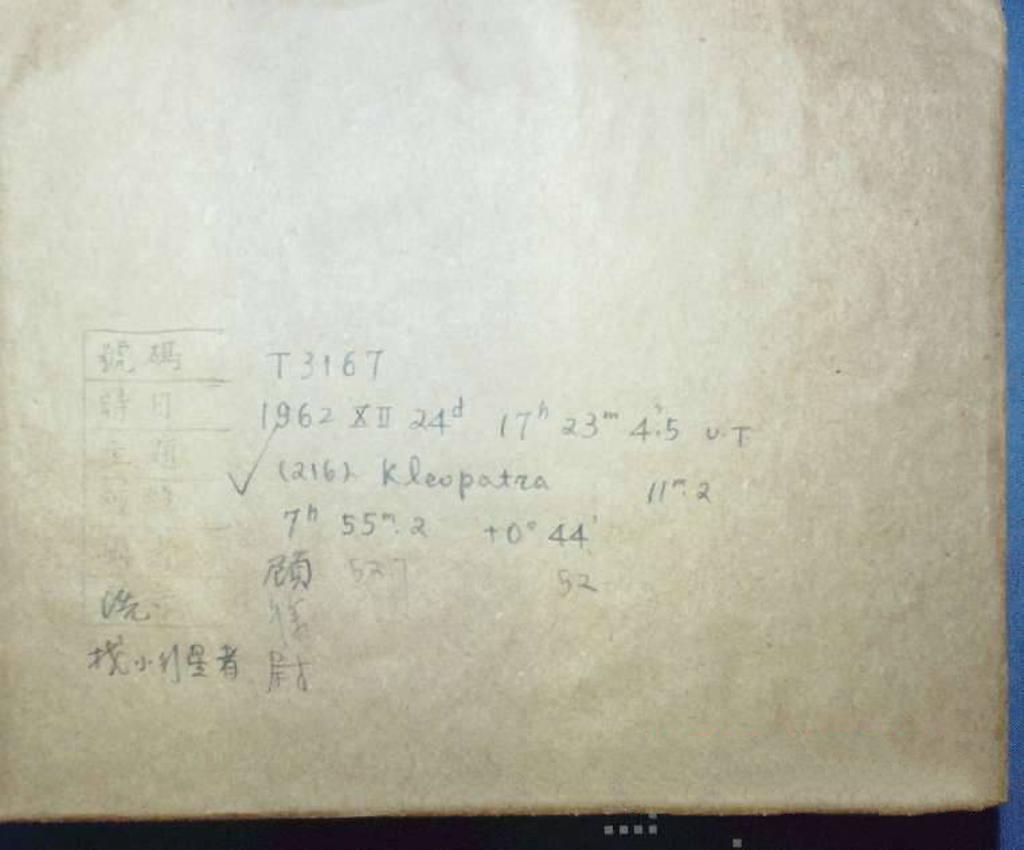 號碼 T3167
時日 1962 XII 24ᵈ 17ʰ 23ᵐ 4ˢ.5 U.T
(216) Kleopatra 11ᵐ.2
7ʰ 55ᵐ.2 +0° 44'
顧 52
洗
找小行星者 尉